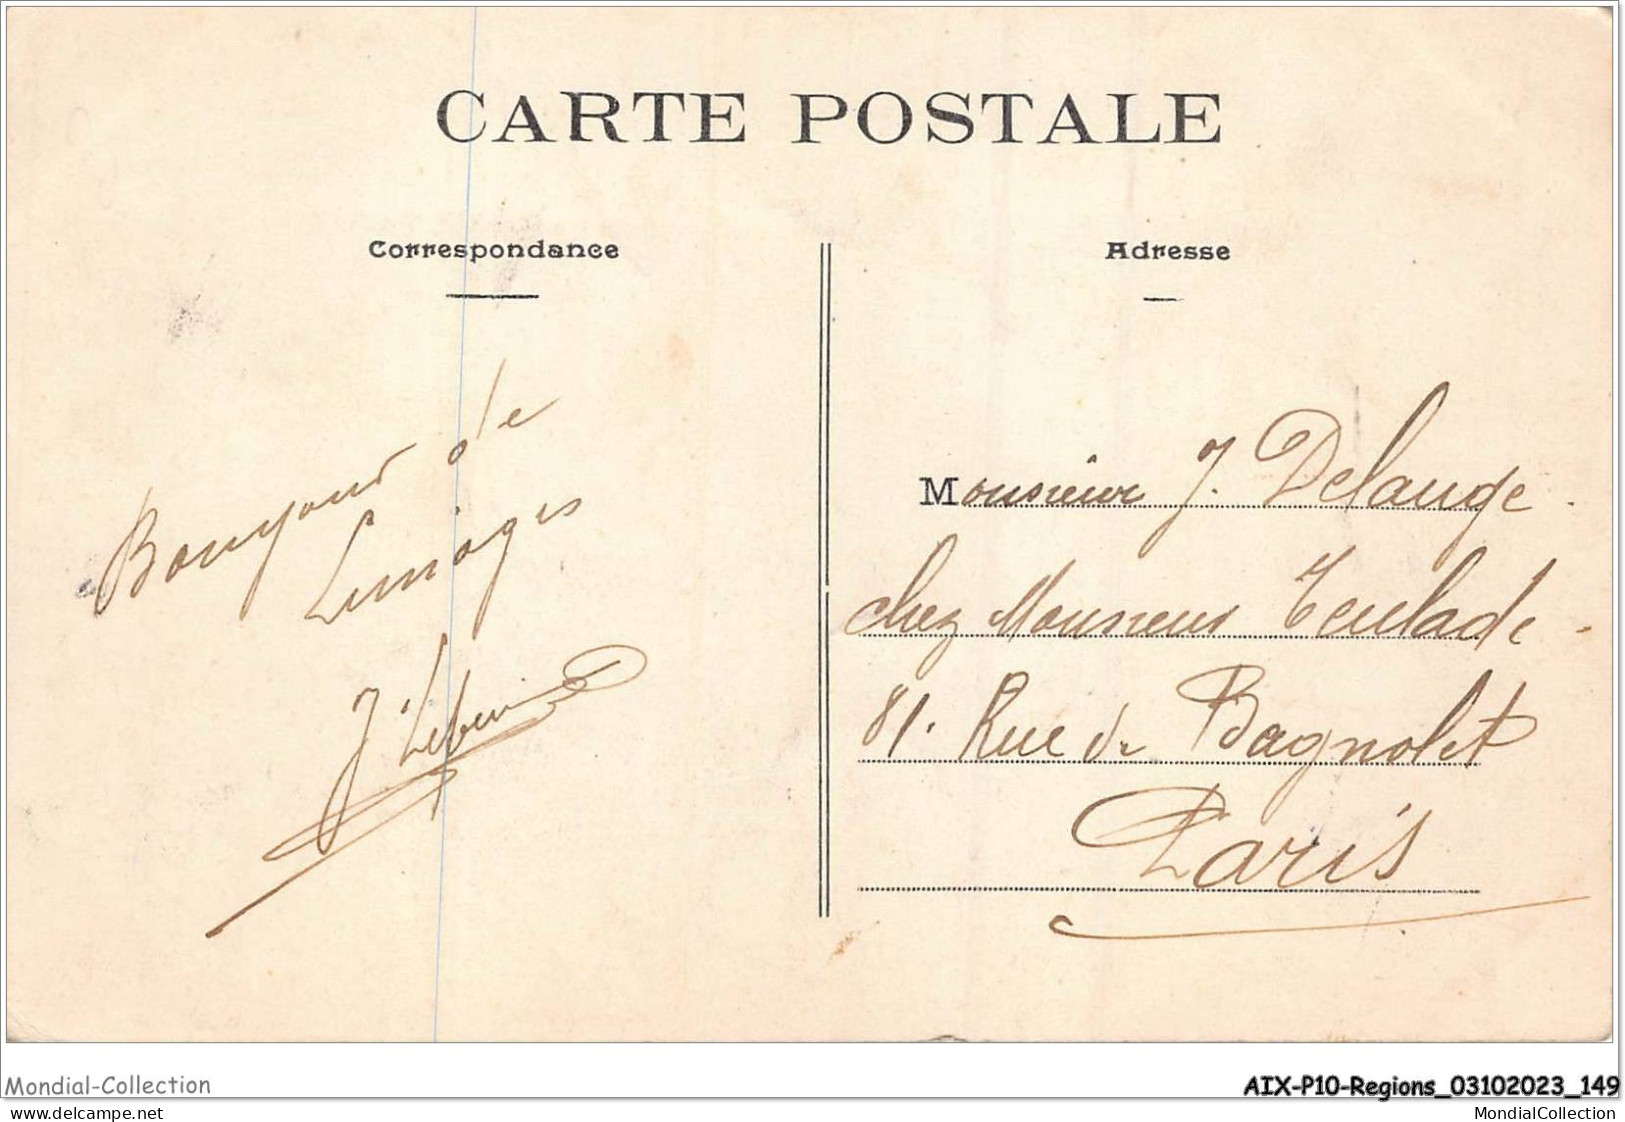 CARTE POSTALE
Correspondance
Adresse
Bonjour de
Limoges
Monsieur J. Delauge
chez Monsieur Teulade
81. Rue de Bagnolet
Paris
Mondial-Collection
AIX-P10-Regions_03102023_149
delcampe.net
MondialCollection